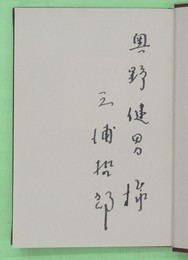 奥野健男様
三浦哲郎